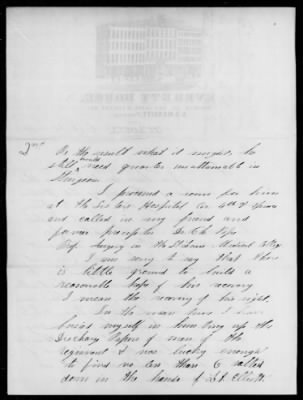 EVERETT HOUSE
2nd
Be the result what it might, he
still would need greater unattainable in
I procured a room for him
at the Sisters Hospital Cor 4th &
and called in my friend and
former preceptor Dr. Ch.
Prof. Surgery in the St Louis Medical College
I am sorry to say that there
is little ground to build a
reasonable hope of his recovery
I mean the recovery of his sight.
In the mean time I have
busied myself in hunting up the
Papers of men of the
regiment I was lucky enough
to find no less than 6 rolled
down in the hands of Lt Elliott